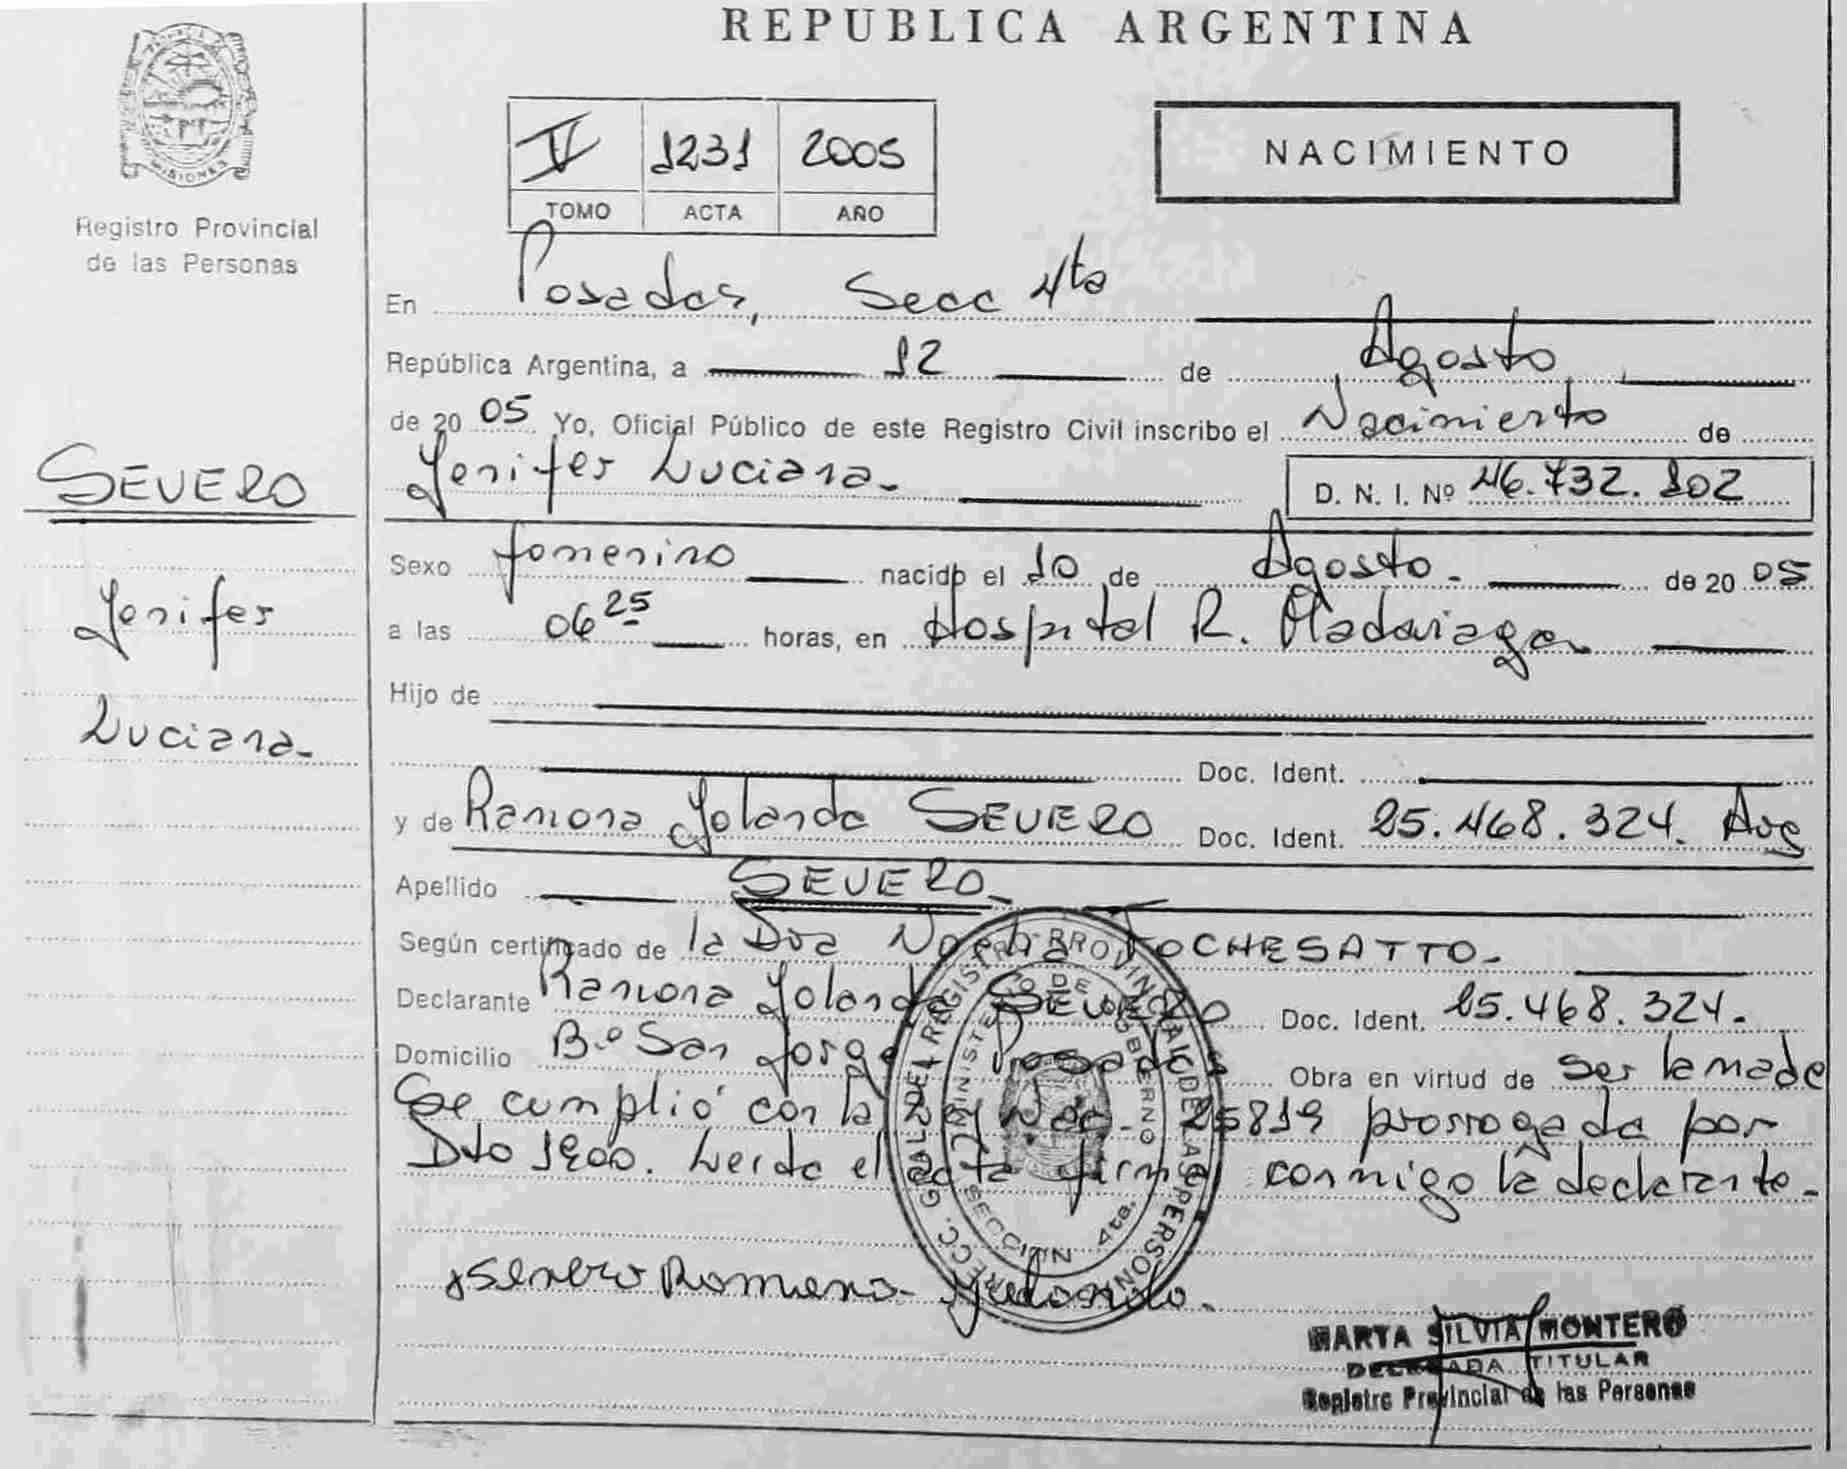 REPUBLICA ARGENTINA
MISIONES
Registro Provincial
de las Personas
V 1231 2005
TOMO ACTA AÑO
NACIMIENTO
En Posadas, Secc 4ta
República Argentina, a 12 de Agosto
de 2005 Yo, Oficial Público de este Registro Civil inscribo el Nacimiento de
Yenifer Luciana.
D. N. I. Nº 46.732.102
SEVERO
Yenifer
Luciana.
Sexo femenino nacido el 10 de Agosto. de 2005
a las 06 25 horas, en Hospital R. Madariaga
Hijo de
Doc. Ident.
y de Ramona Yolanda SEVERO Doc. Ident. 25.468.324. Arg
Apellido SEVERO.
Según certificado de la Dra TOCHESATTO.
Declarante Ramona Yolanda SEVERO Doc. Ident. 25.468.324.
Domicilio Bº San Jorge Posadas Obra en virtud de ser la madre
Se cumplió con la Ley Nac. 25819 prorrogada por
Dto 1900. Leida el acta firma conmigo la declarante.
Severo Ramona
DIRECC. GRAL DEL REGISTRO PROVINCIAL DE LAS PERSONAS
MINISTERIO DE GOBIERNO
SECCION 4ta.
MARTA SILVIA MONTERO
DELEGADA TITULAR
Registro Provincial de las Personas